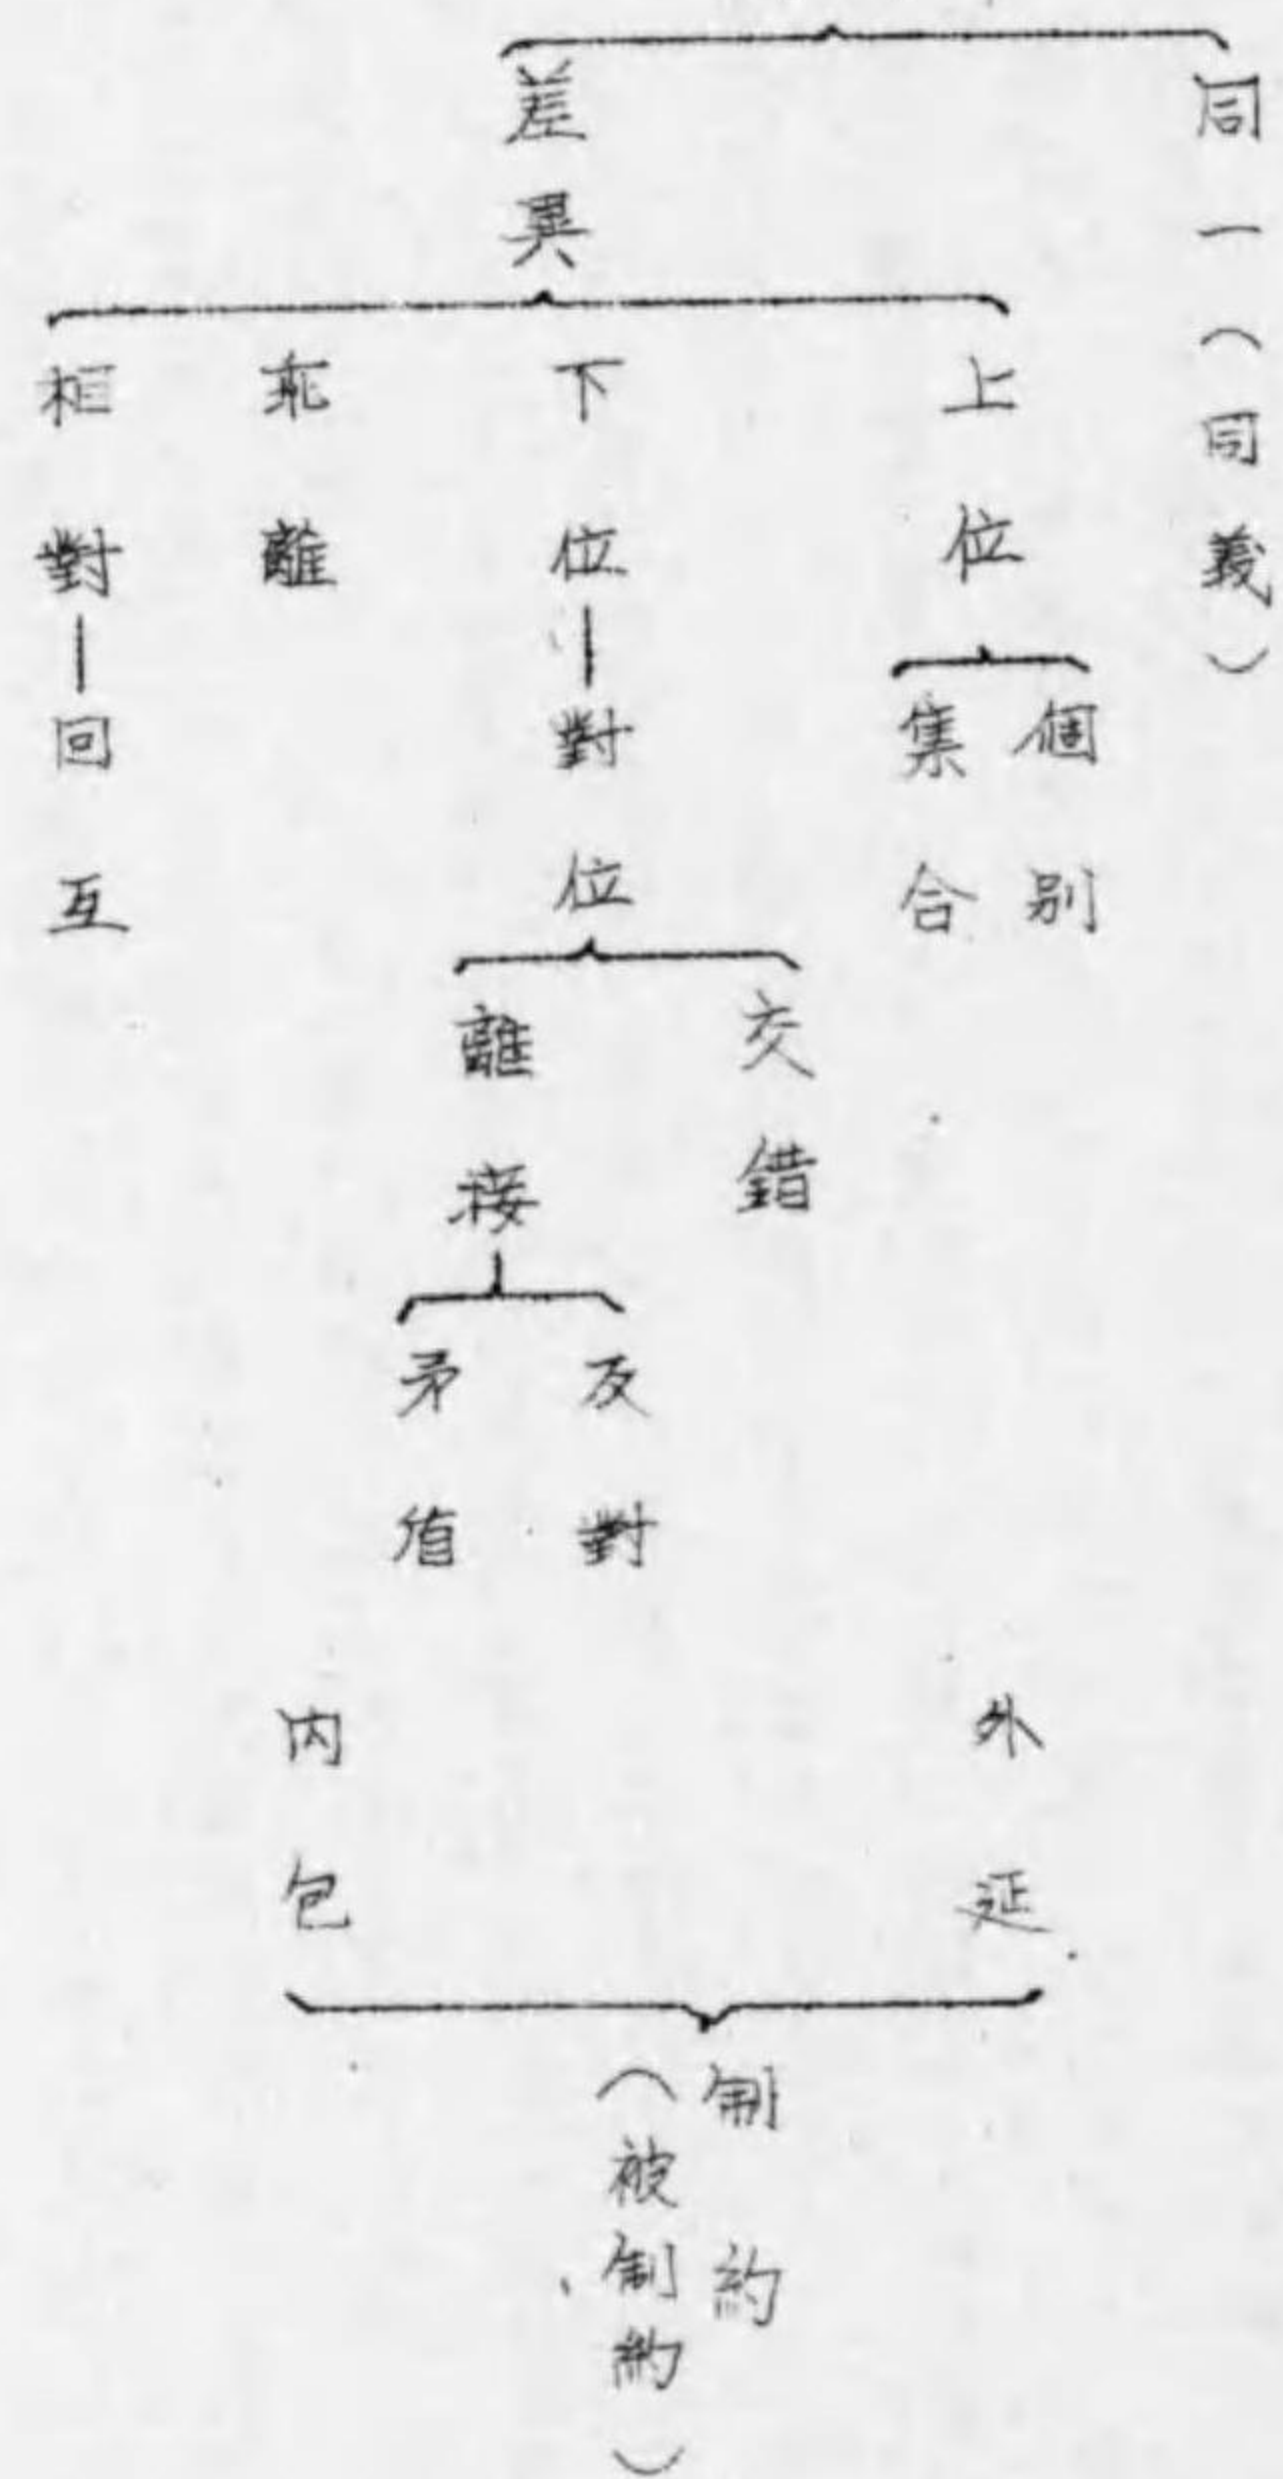 同一（同義）
差異
上位
個別
集合
下位—對位
交錯
離接
反對
矛盾
乖離
相對—回互
外延
內包
制約
（被制約）